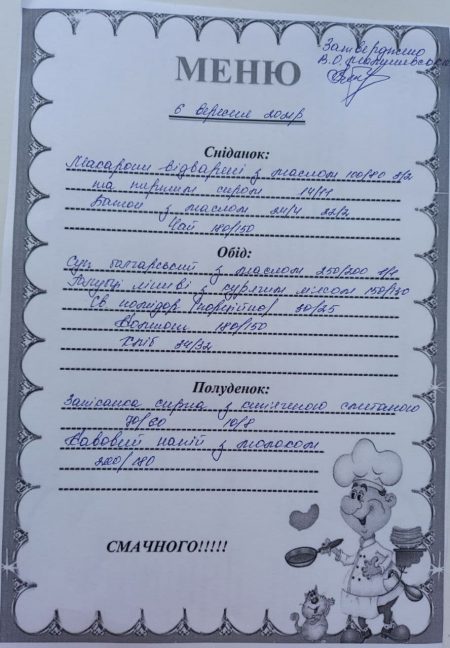 Затверджено
МЕНЮ
6 вересня
Сніданок:
Макарони відварені з маслом 100/80
та тертим сиром 14/11
Батон з маслом 24/4 22/2
Чай 180/150
Обід:
Суп болгарський з маслом 250/200
Голубці ліниві з курячим м'ясом 150/130
Св. помідор /порційно/ 30/25
Компот 180/150
Хліб 34/32
Полуденок:
Запіканка сирна з кип'яченою сметаною
70/60 10/8
Кавовий напій з молоком
200/180
СМАЧНОГО!!!!!